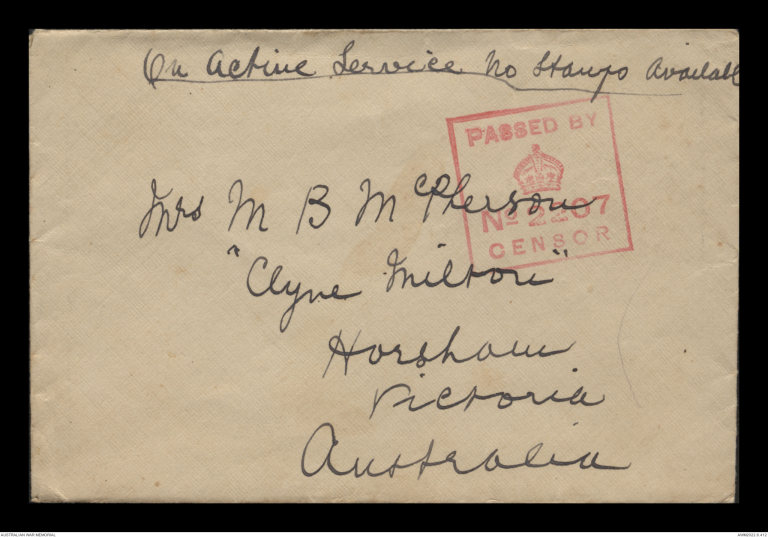 On Active Service No Stamps Available
PASSED BY
No 2207
CENSOR
Mrs M B McPherson
"Clyne Milton"
Horsham
Victoria
Australia
AUSTRALIAN WAR MEMORIAL